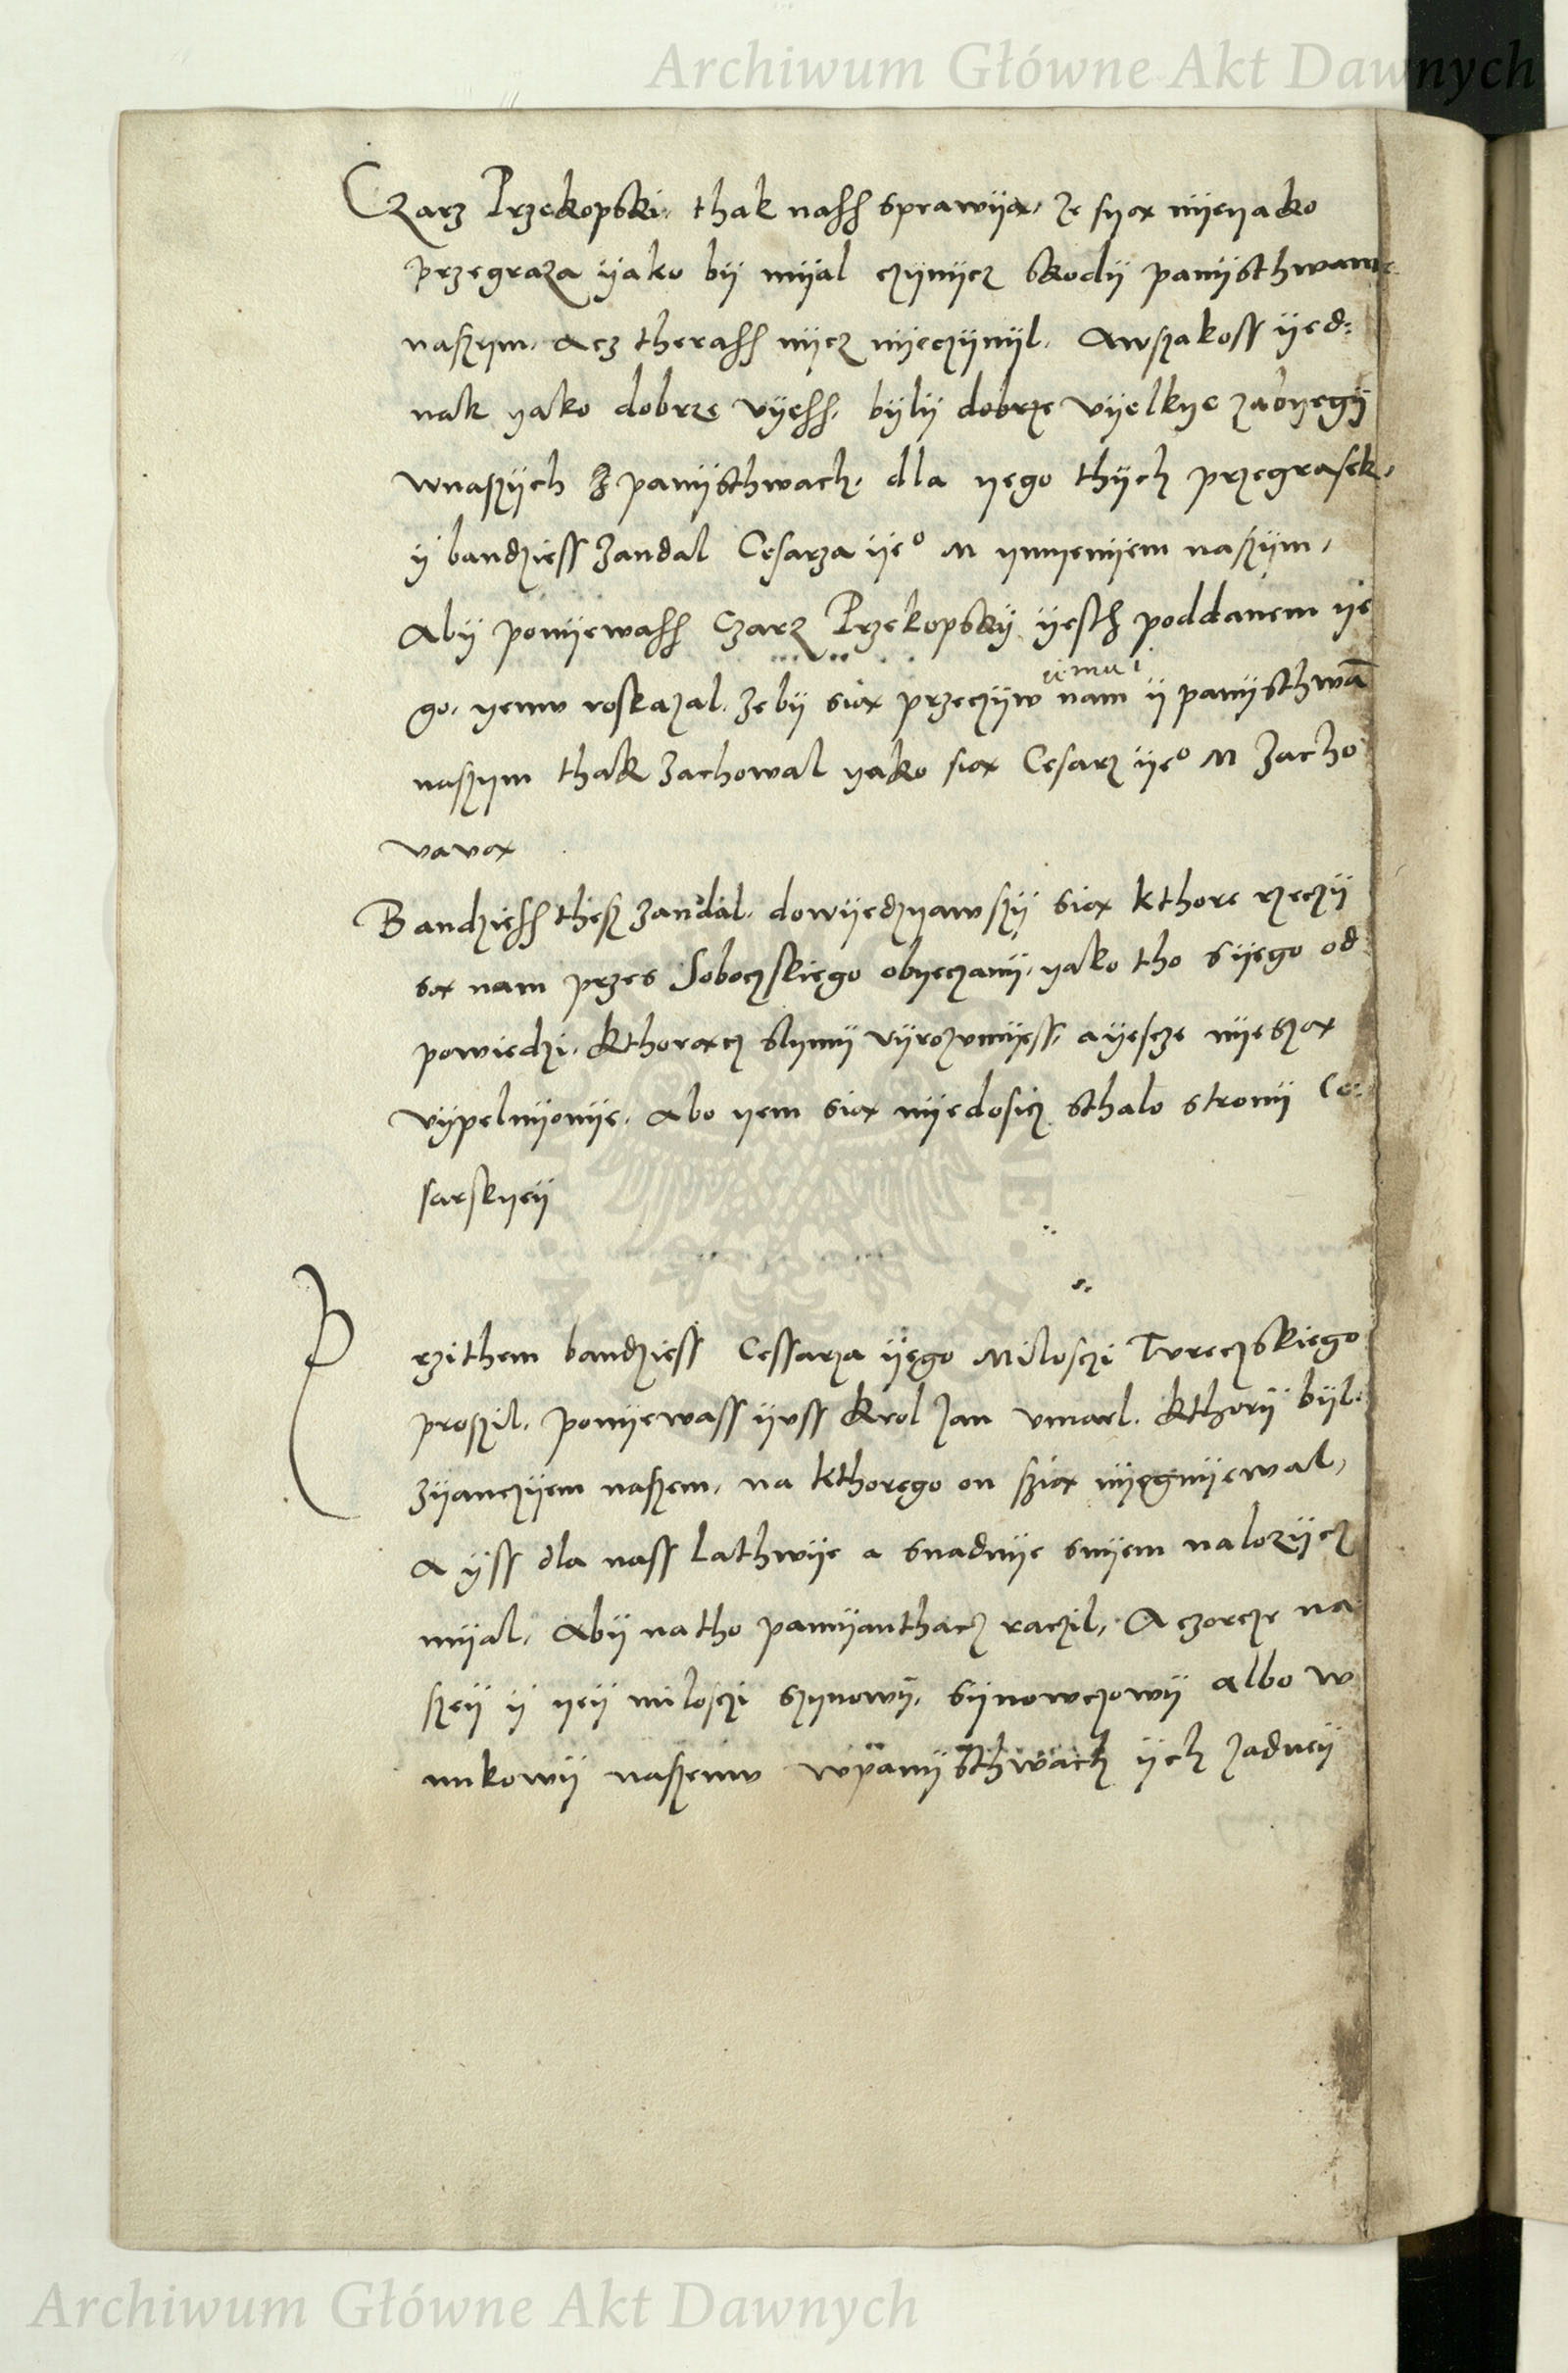 Archiwum Główne Akt Dawnych
Czarz Przekopski, thak nassz sprawyą, ze szyą nyeyako
przegraza yako by myal czynycz skody panysthwam
naszym, acz therassz nycz nyeczynyl, awszakoss yed:
nak yako dobrze vyessz, byly dobrze vyelkye zabyegy
wnaszych panysthwach, dla yego thych przegrasek,
y bandziess zandal Cesarza ye° M ymyenyem naszym,
Aby ponyewassz Czarz Przekopsky yesth poddanem ye
go, yemu roskazal, ze by sią przeczyw nam y panysthwā
naszym thak zachowal yako sią Cesarz ye° M zacho
vavą
Bandziessz thesz zandal, dowyedzyawszy sią kthore rzeczy
są nam przes Soboczskiego obyeczany, yako tho syego od
powiedzi, kthorącz slymy vyrozumyess, a yescze nyeszą
vypelnyonye, Abo yem sią nyedosicz sthalo strony Ce:
sarskyey
Przithem bandziess Cessarza yego Milosczi Tureczskiego
proszil, ponyewass yuss Krol Jan umarl, kthory byl
zyanczyem naszem, na kthorego on szią nyegnyewal,
A yss dla nass lathwye a snadnye snyem nalozycz
myal, Aby na tho pamyanthacz raczil, A czorcze na
szey y yey milosczi szynowy, synowczowy albo w
nukowy naszemu wpanysthwach ych zadney
Archiwum Główne Akt Dawnych